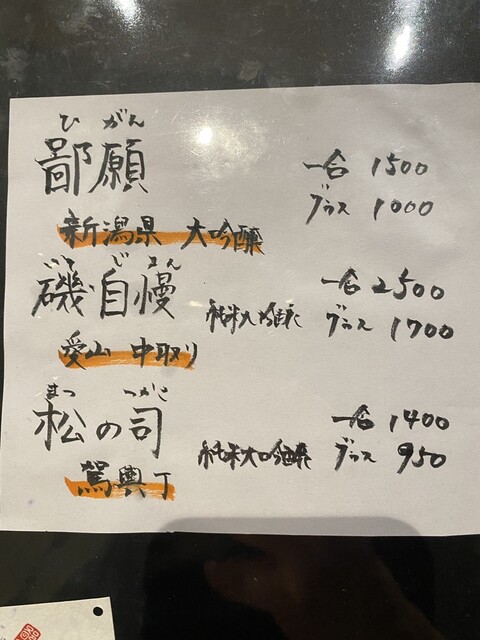 ひ がん
鄙願 一合 1500
グラス 1000
新潟県 大吟醸
いそ じ まん
磯自慢 純米大吟醸 一合 2500
グラス 1700
愛山 中取り
まつ つかさ
松の司 純米大吟醸 一合 1400
グラス 950
駕輿丁